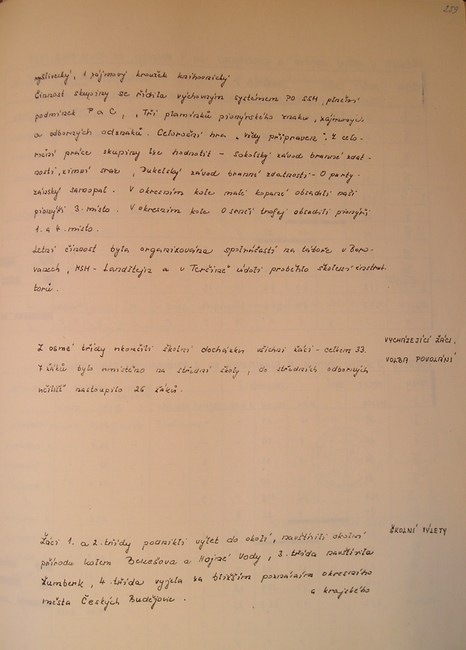 229
myslivecký, 1 zájmový kroužek knihovnický
Činnost skupiny se řídila výchovným systémem PO SSM, plnění
podmínek P a C, "Tři plamínků pionýrského znaku, zájmových
a odborných odznaků. Celoroční hra "Vždy připraven". Z celo-
roční práce skupiny lze hodnotit - Sokolský závod branné zdat-
nosti, zimní sraz, Dukelský závod branné zdatnosti - O party-
zánský samopal. V okresním kole malé kopané obsadili naši
pionýři 3. místo. V okresním kole O srnčí trofej obsadili pionýři
1. a 4. místo.
Letní činnost byla organizována spoluúčastí na táboře v Boro-
vanech, MSM - Landštejn a v Terčině údolí proběhlo školení instruk-
torů.
Z osmé třídy ukončili školní docházku všichni žáci - celkem 33.
VYCHÁZEJÍCÍ ŽÁCI,
7 žáků bylo umístěno na střední školy, do středních odborných
VOLBA POVOLÁNÍ
učilišť nastoupilo 26 žáků.
ŠKOLNÍ VÝLETY
Žáci 1. a 2. třídy podnikli výlet do okolí, navštívili okolní
přírodu kolem Benešova a Hojné Vody, 3. třída navštívila
Žumberk, 4. třída vyjela za bližším poznáním okresního
a krajského
města Českých Budějovic.